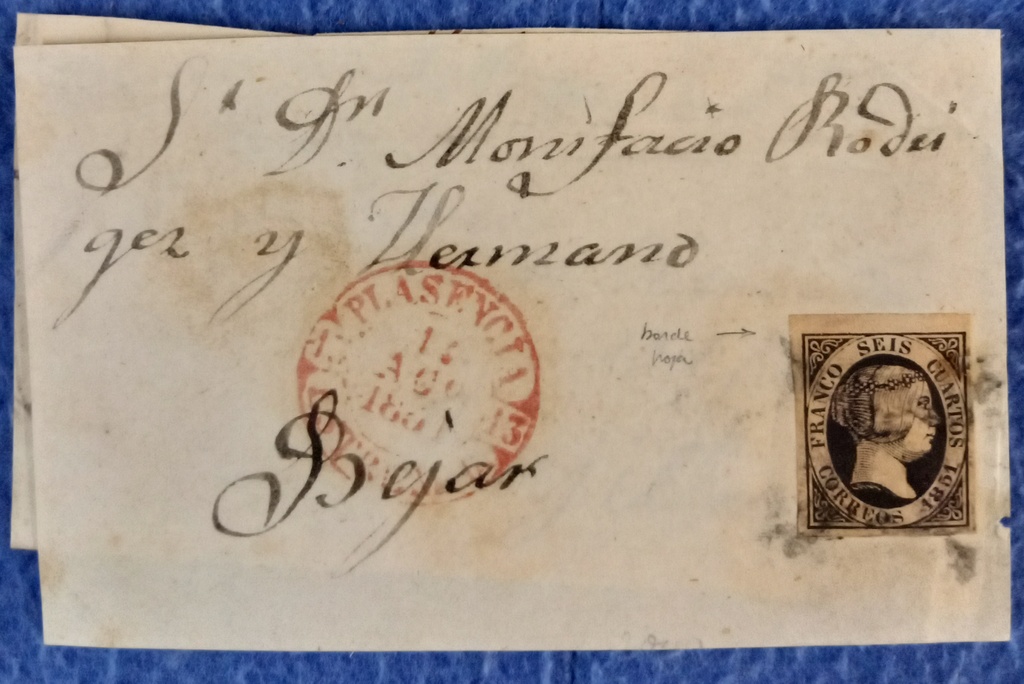 Sr. Dn. Monifacio Rodri
gez y Hermano
Bejar
PLASENCIA
AGO
borde
hoja
FRANCO SEIS CUARTOS
CORREOS 1851